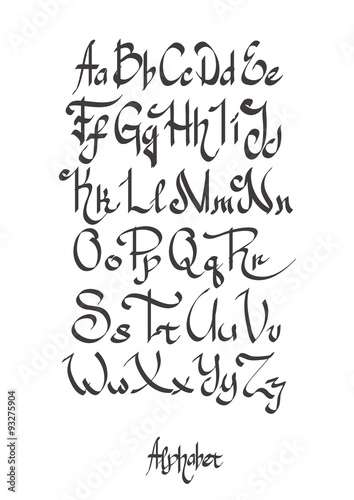 Aa Bb Cc Dd Ee
Ff Gg Hh Ii Jj
Kk Ll Mm Nn
Oo Pp Qq Rr
Ss Tt Uu Vv
Ww Xx Yy Zz
Alphabet
Adobe Stock | #93275904